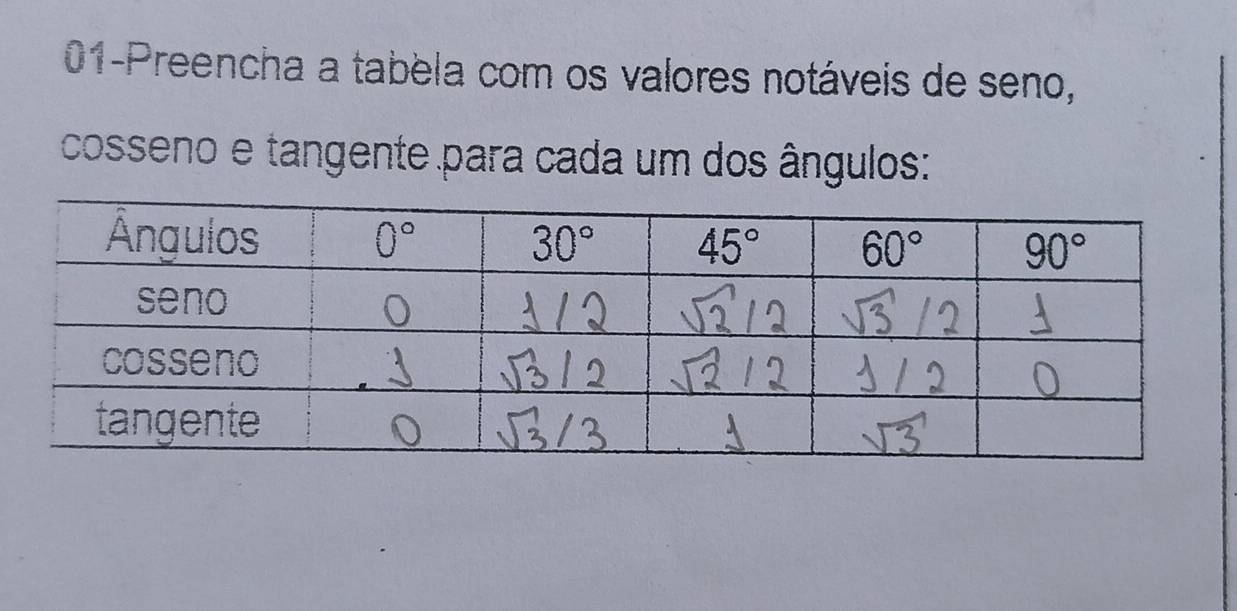 01-Preencha a tabela com os valores notáveis de seno,
cosseno e tangente para cada um dos ângulos:
Ângulos 0° 30° 45° 60° 90°
seno 0 1/2 √2/2 √3/2 1
cosseno 1 √3/2 √2/2 1/2 0
tangente 0 √3/3 1 √3